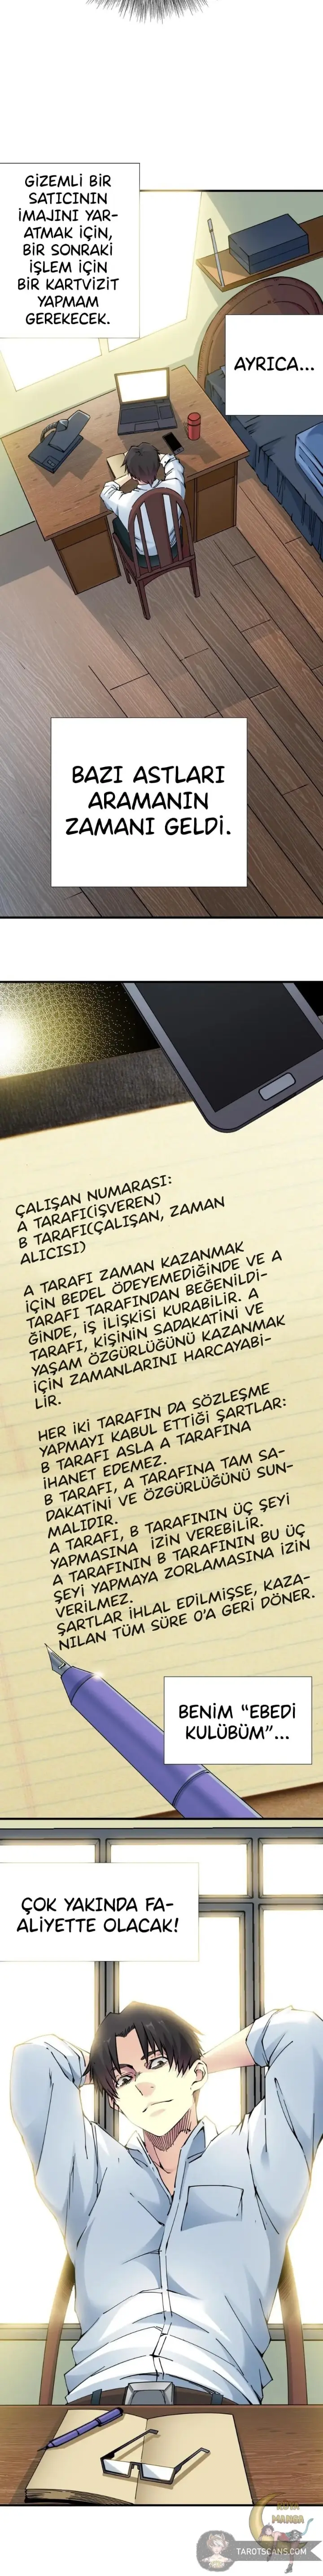 GİZEMLİ BİR
SATICININ
İMAJINI YAR-
ATMAK İÇİN,
BİR SONRAKİ
İŞLEM İÇİN
BİR KARTVİZİT
YAPMAM
GEREKECEK.
AYRICA...
BAZI ASTLARI
ARAMANIN
ZAMANI GELDİ.
ÇALIŞAN NUMARASI:
A TARAFI(İŞVEREN)
B TARAFI(ÇALIŞAN, ZAMAN
ALICISI)
A TARAFI ZAMAN KAZANMAK
İÇİN BEDEL ÖDEYEMEDİĞİNDE VE A
TARAFI TARAFINDAN BEĞENİLDİ-
ĞİNDE, İŞ İLİŞKİSİ KURABİLİR. A
TARAFI, KİŞİNİN SADAKATİNİ VE
YAŞAM ÖZGÜRLÜĞÜNÜ KAZANMAK
İÇİN ZAMANLARINI HARCAYABİ-
LİR.
HER İKİ TARAFIN DA SÖZLEŞME
YAPMAYI KABUL ETTİĞİ ŞARTLAR:
B TARAFI ASLA A TARAFINA
İHANET EDEMEZ.
B TARAFI, A TARAFINA TAM SA-
DAKATİNİ VE ÖZGÜRLÜĞÜNÜ SUN-
MALIDIR.
A TARAFI, B TARAFININ ÜÇ ŞEYİ
YAPMASINA İZİN VEREBİLİR.
A TARAFININ B TARAFININ BU ÜÇ
ŞEYİ YAPMAYA ZORLAMASINA İZİN
VERİLMEZ.
ŞARTLAR İHLAL EDİLMİŞSE, KAZA-
NILAN TÜM SÜRE 0'A GERİ DÖNER.
BENİM "EBEDİ
KULÜBÜM"...
ÇOK YAKINDA FA-
ALİYETTE OLACAK!
MANGA
TAROTSCANS.COM